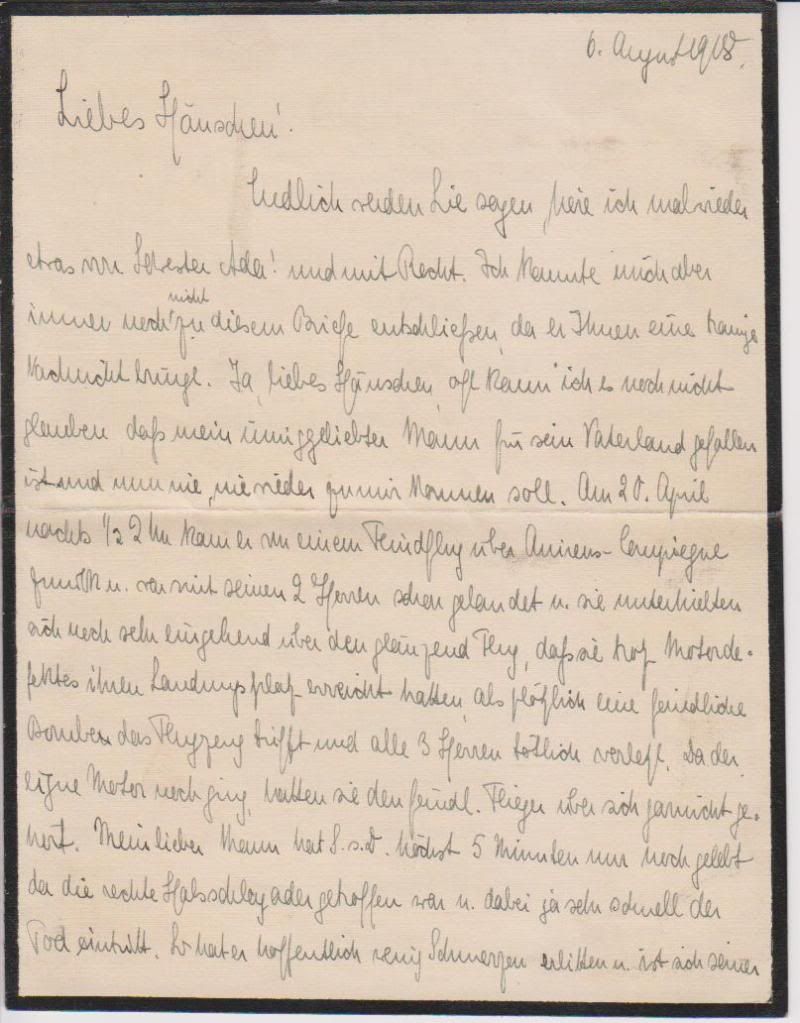 6. August 1918.
Liebes Häuschen!
Endlich werden Sie sagen, höre ich mal wieder
etwas von Schwester Ada! und mit Recht. Ich konnte mich aber
immer noch nicht zu diesem Briefe entschließen, da er Ihnen eine traurige
Nachricht bringt. Ja, liebes Häuschen, oft kann ich es noch nicht
glauben daß mein inniggeliebter Mann für sein Vaterland gefallen
ist und nun nie, nie wieder zu mir kommen soll. Am 20. April
nachts ½ 2 Uhr kam er von einem Feindflug über Amiens-Compiegne
zurück u. war mit seinen 2 Herren schon gelandet u. sie unterhielten
sich noch sehr eingehend über den glänzend Flug, daß sie trotz Motorde-
fektes ihren Landungsplatz erreicht hatten, als plötzlich eine feindliche
Bombe das Flugzeug trifft und alle 3 Herren tötlich verletzt. Da der
eigne Motor noch ging, hatten sie den feindl. Flieger über sich garnicht ge-
hört. Mein lieber Mann hat G. s. D. höchst 5 Minuten nur noch gelebt
da die rechte Halsschlagader getroffen war u. dabei ja sehr schnell der
Tod eintritt. So hat er hoffentlich wenig Schmerzen erlitten u. ist sich seiner